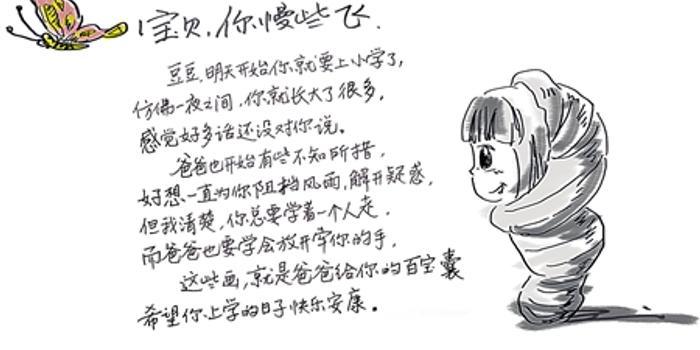 宝贝,你慢些飞.
豆豆,明天开始你就要上小学了,
仿佛一夜之间,你就长大了很多,
感觉好多话还没对你说。
爸爸也开始有些不知所措,
好想一直为你阻挡风雨,解开疑惑,
但我清楚,你总要学着一个人走,
而爸爸也要学会放开牢你的手,
这些画,就是爸爸给你的百宝囊
希望你上学的日子快乐安康。